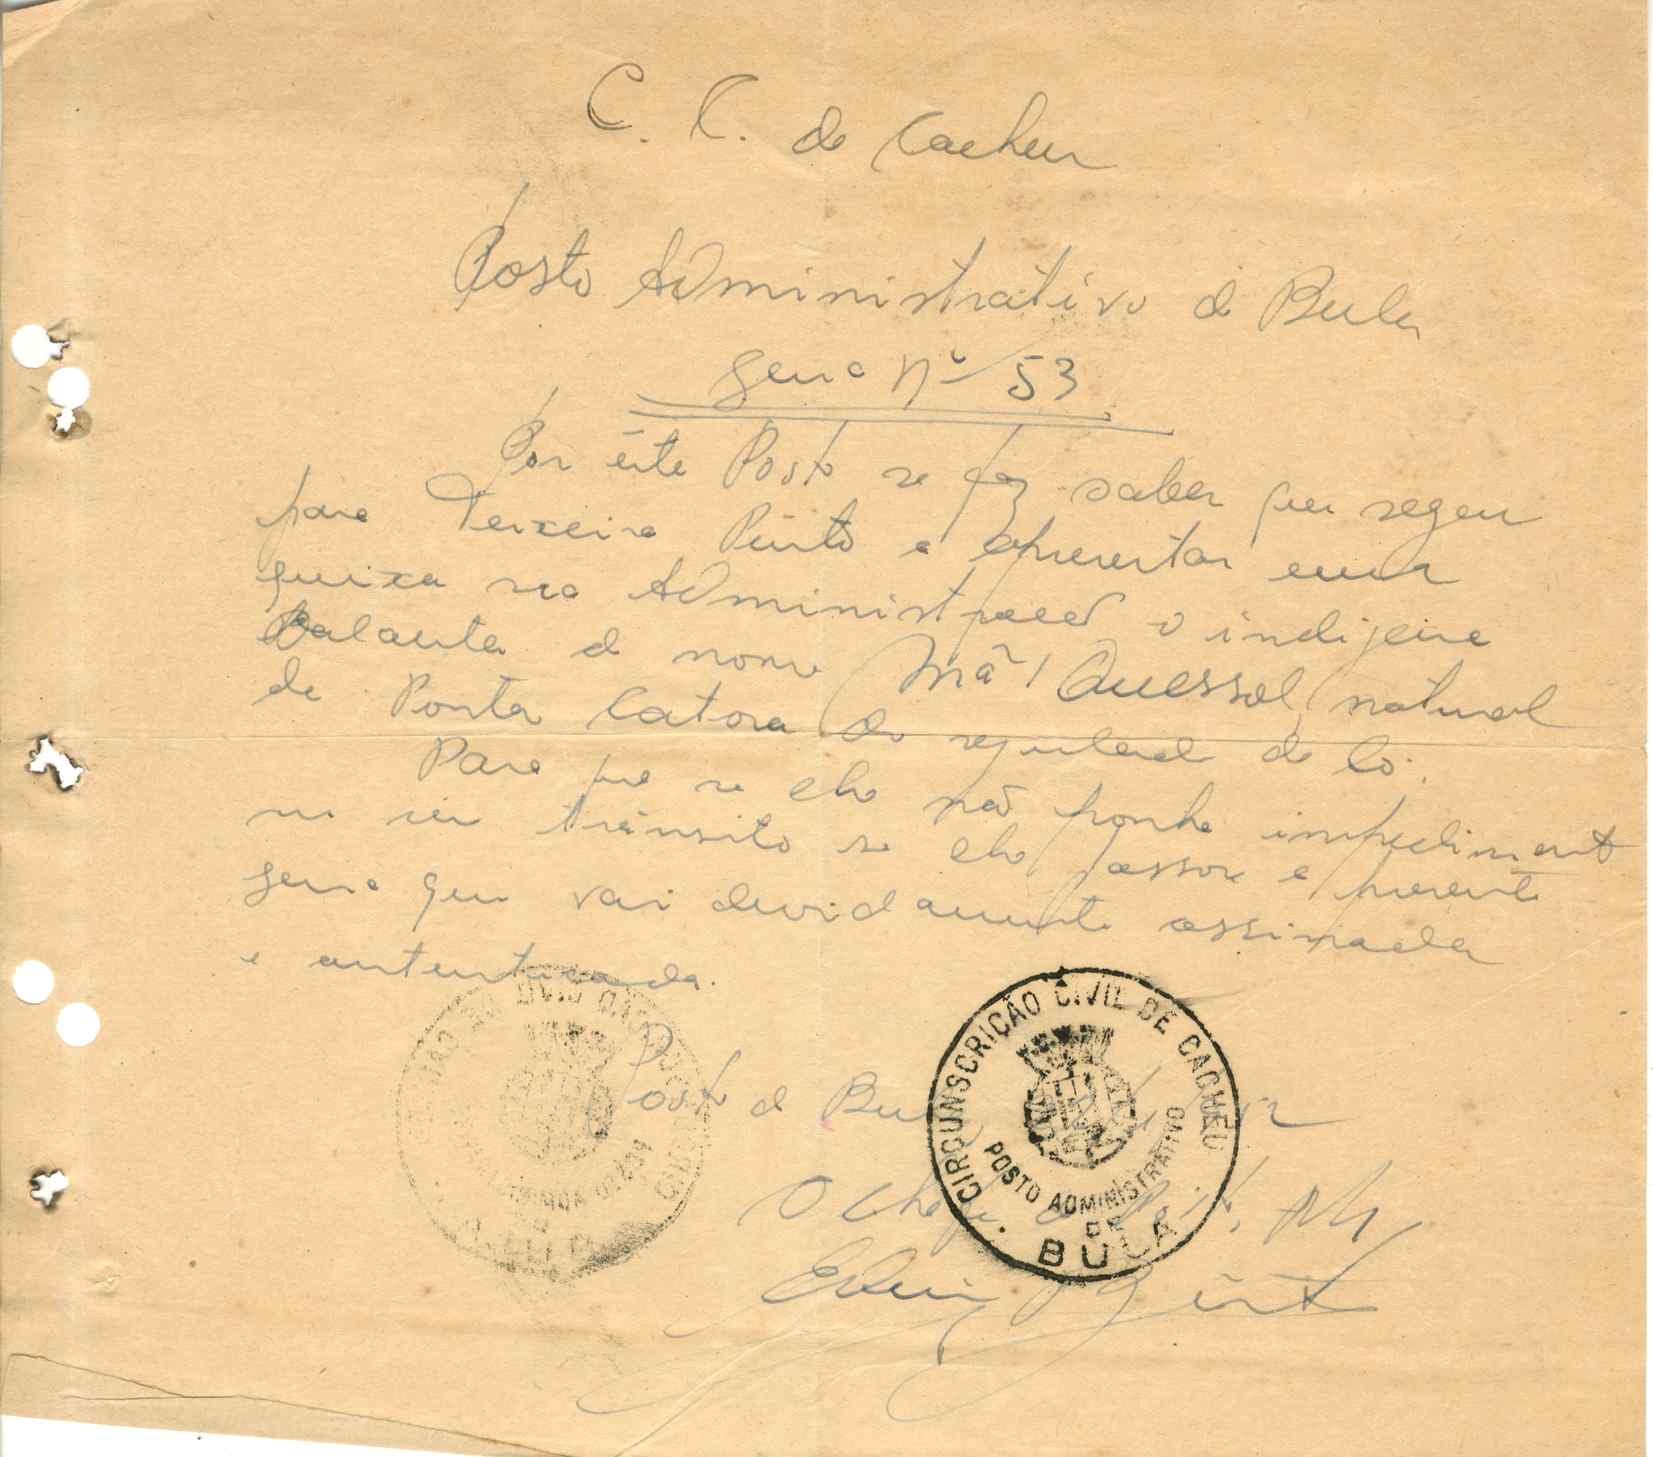 C. C. de Cacheu
Posto Administrativo de Bula
Guia nº 53
Por êste Posto se faz saber que segue
para Teixeira Pinto a apresentar uma
queixa na Administração o indijena
Balanta de nome Mã Quessol natural
de Ponta Catora do regulad de Có.
Para que se lhe não ponha impediment
no seu trânsito se lhe passou a presente
guia que vai devidamente assinada
e autenticada.
Posto de Bu
O Chefe de Post,
CIRCUNSCRIÇÃO CIVIL DE CACHEU
POSTO ADMINISTRATIVO
DE
BULA